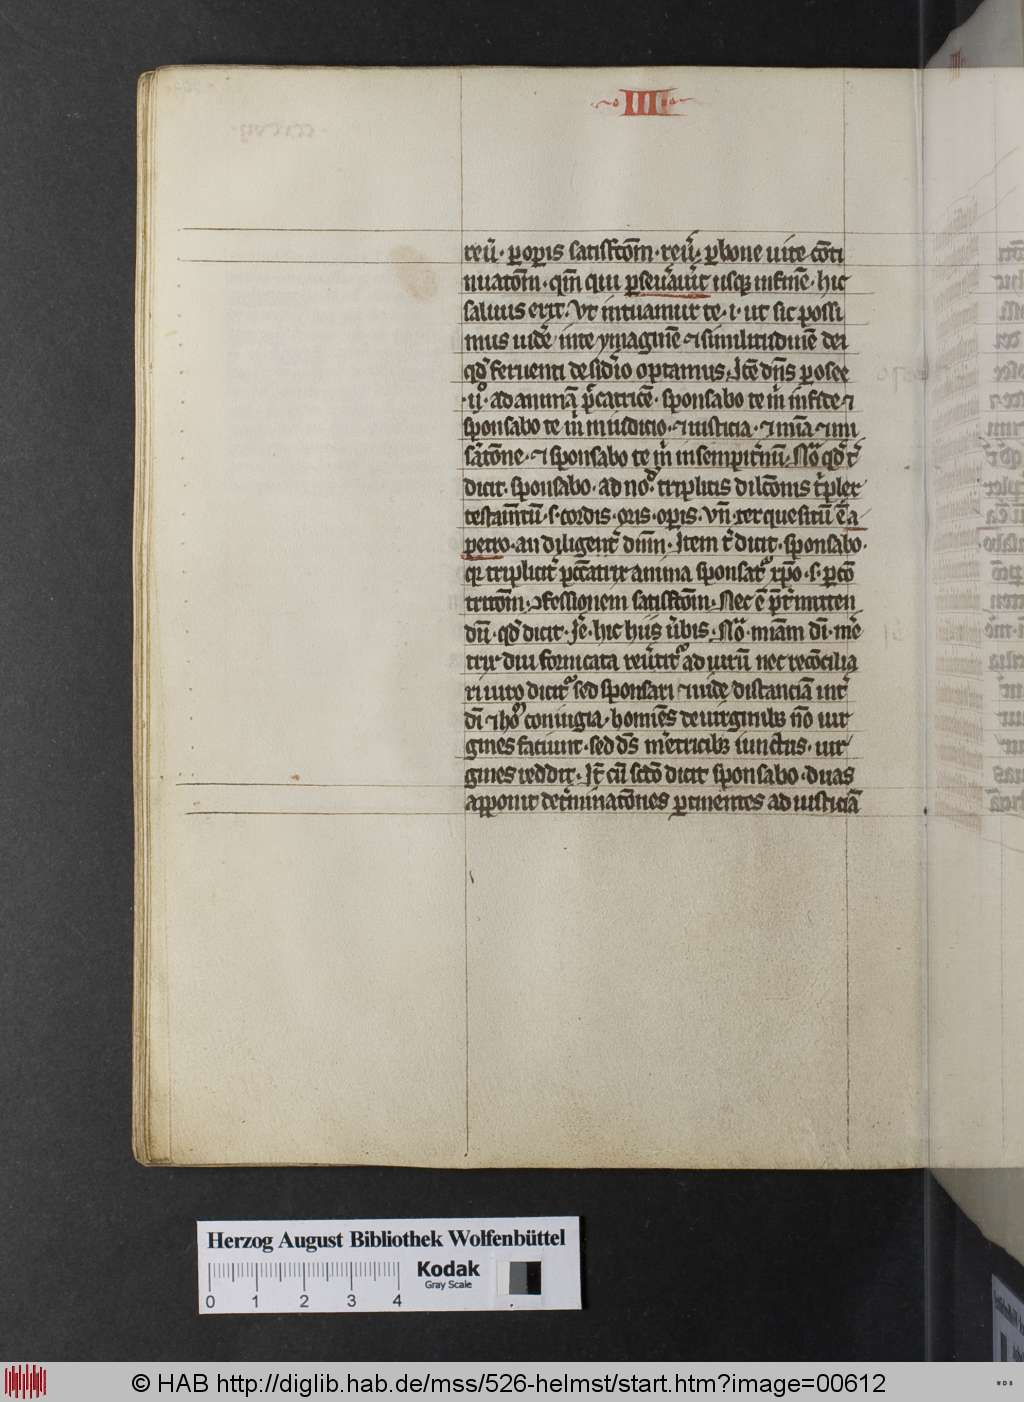 IIII
reũ· ꝑ oꝑis satisfc̃om̃· reũ̃· ꝑ bone uite cõti
nuatom̃· qm̃ qui ꝑseuãuit usqꝫ in finẽ· hic
saluus erit· Vt intuamur te· i· ut sic possi
mus uidẽ in te ymaginẽ ⁊ similitudinẽ dei
qd̃ feruenti desid̃io optamus· Itẽ dñs ꝑ osee
·ijº· ad animã p̃catricẽ· sponsabo te m̃ in fide ⁊
sponsabo te m̃ in iudicio· ⁊ iusticia· ⁊ mĩa ⁊ mi
sãtõne· ⁊ sponsabo te m̃ in sempit̃nũ· Nõ qd̃ t̃
dicit· sponsabo· ad triplicis dilc̃onis t̃plex
testam̃tũ· s· cordis· oris· oꝑis· Vñ ter quesitũ ẽ a
petro· an diligent̃ dñm· Item t̃ dicit· sponsabo·
triplicit̃ pc̃catrix anima sponsat̃ xp̃o· s· ꝑ cõ
tritom̃· ꝯfessionem satisfc̃om̃· Nec ẽ p̃t̃mitten
dũ· qd̃ dicit· Ie᷒· hic hijs ũbis· Nõ· miãm dĩ· me᷒
trix diu fornicata reũtit̃ ad uirũ nec recõcilia
ri uiro dicit̃ sed sponsari ⁊ uide distanciã int̃
dĩ ⁊ hoĩm coniugia· homĩes de uirginibꝫ nõ uir
gines faciunt· sed d̃s me᷒tricibꝫ iunctus· uir
gines reddit· It̃ cũ scd̃o dicit sponsabo· duas
apponit det̃minatõnes ꝑtinentes ad iusticiã
Herzog August Bibliothek Wolfenbüttel
Kodak
Gray Scale
0 1 2 3 4
© HAB http://diglib.hab.de/mss/526-helmst/start.htm?image=00612